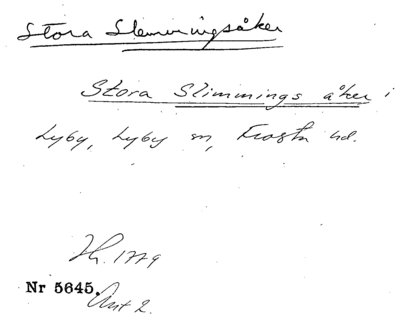 Stora Slemmingsåker
Stora Slimmings åker i
Lyby, Lyby sn, Frosta hd.
Lh. 1779
Nr 5645.
Ant 2.